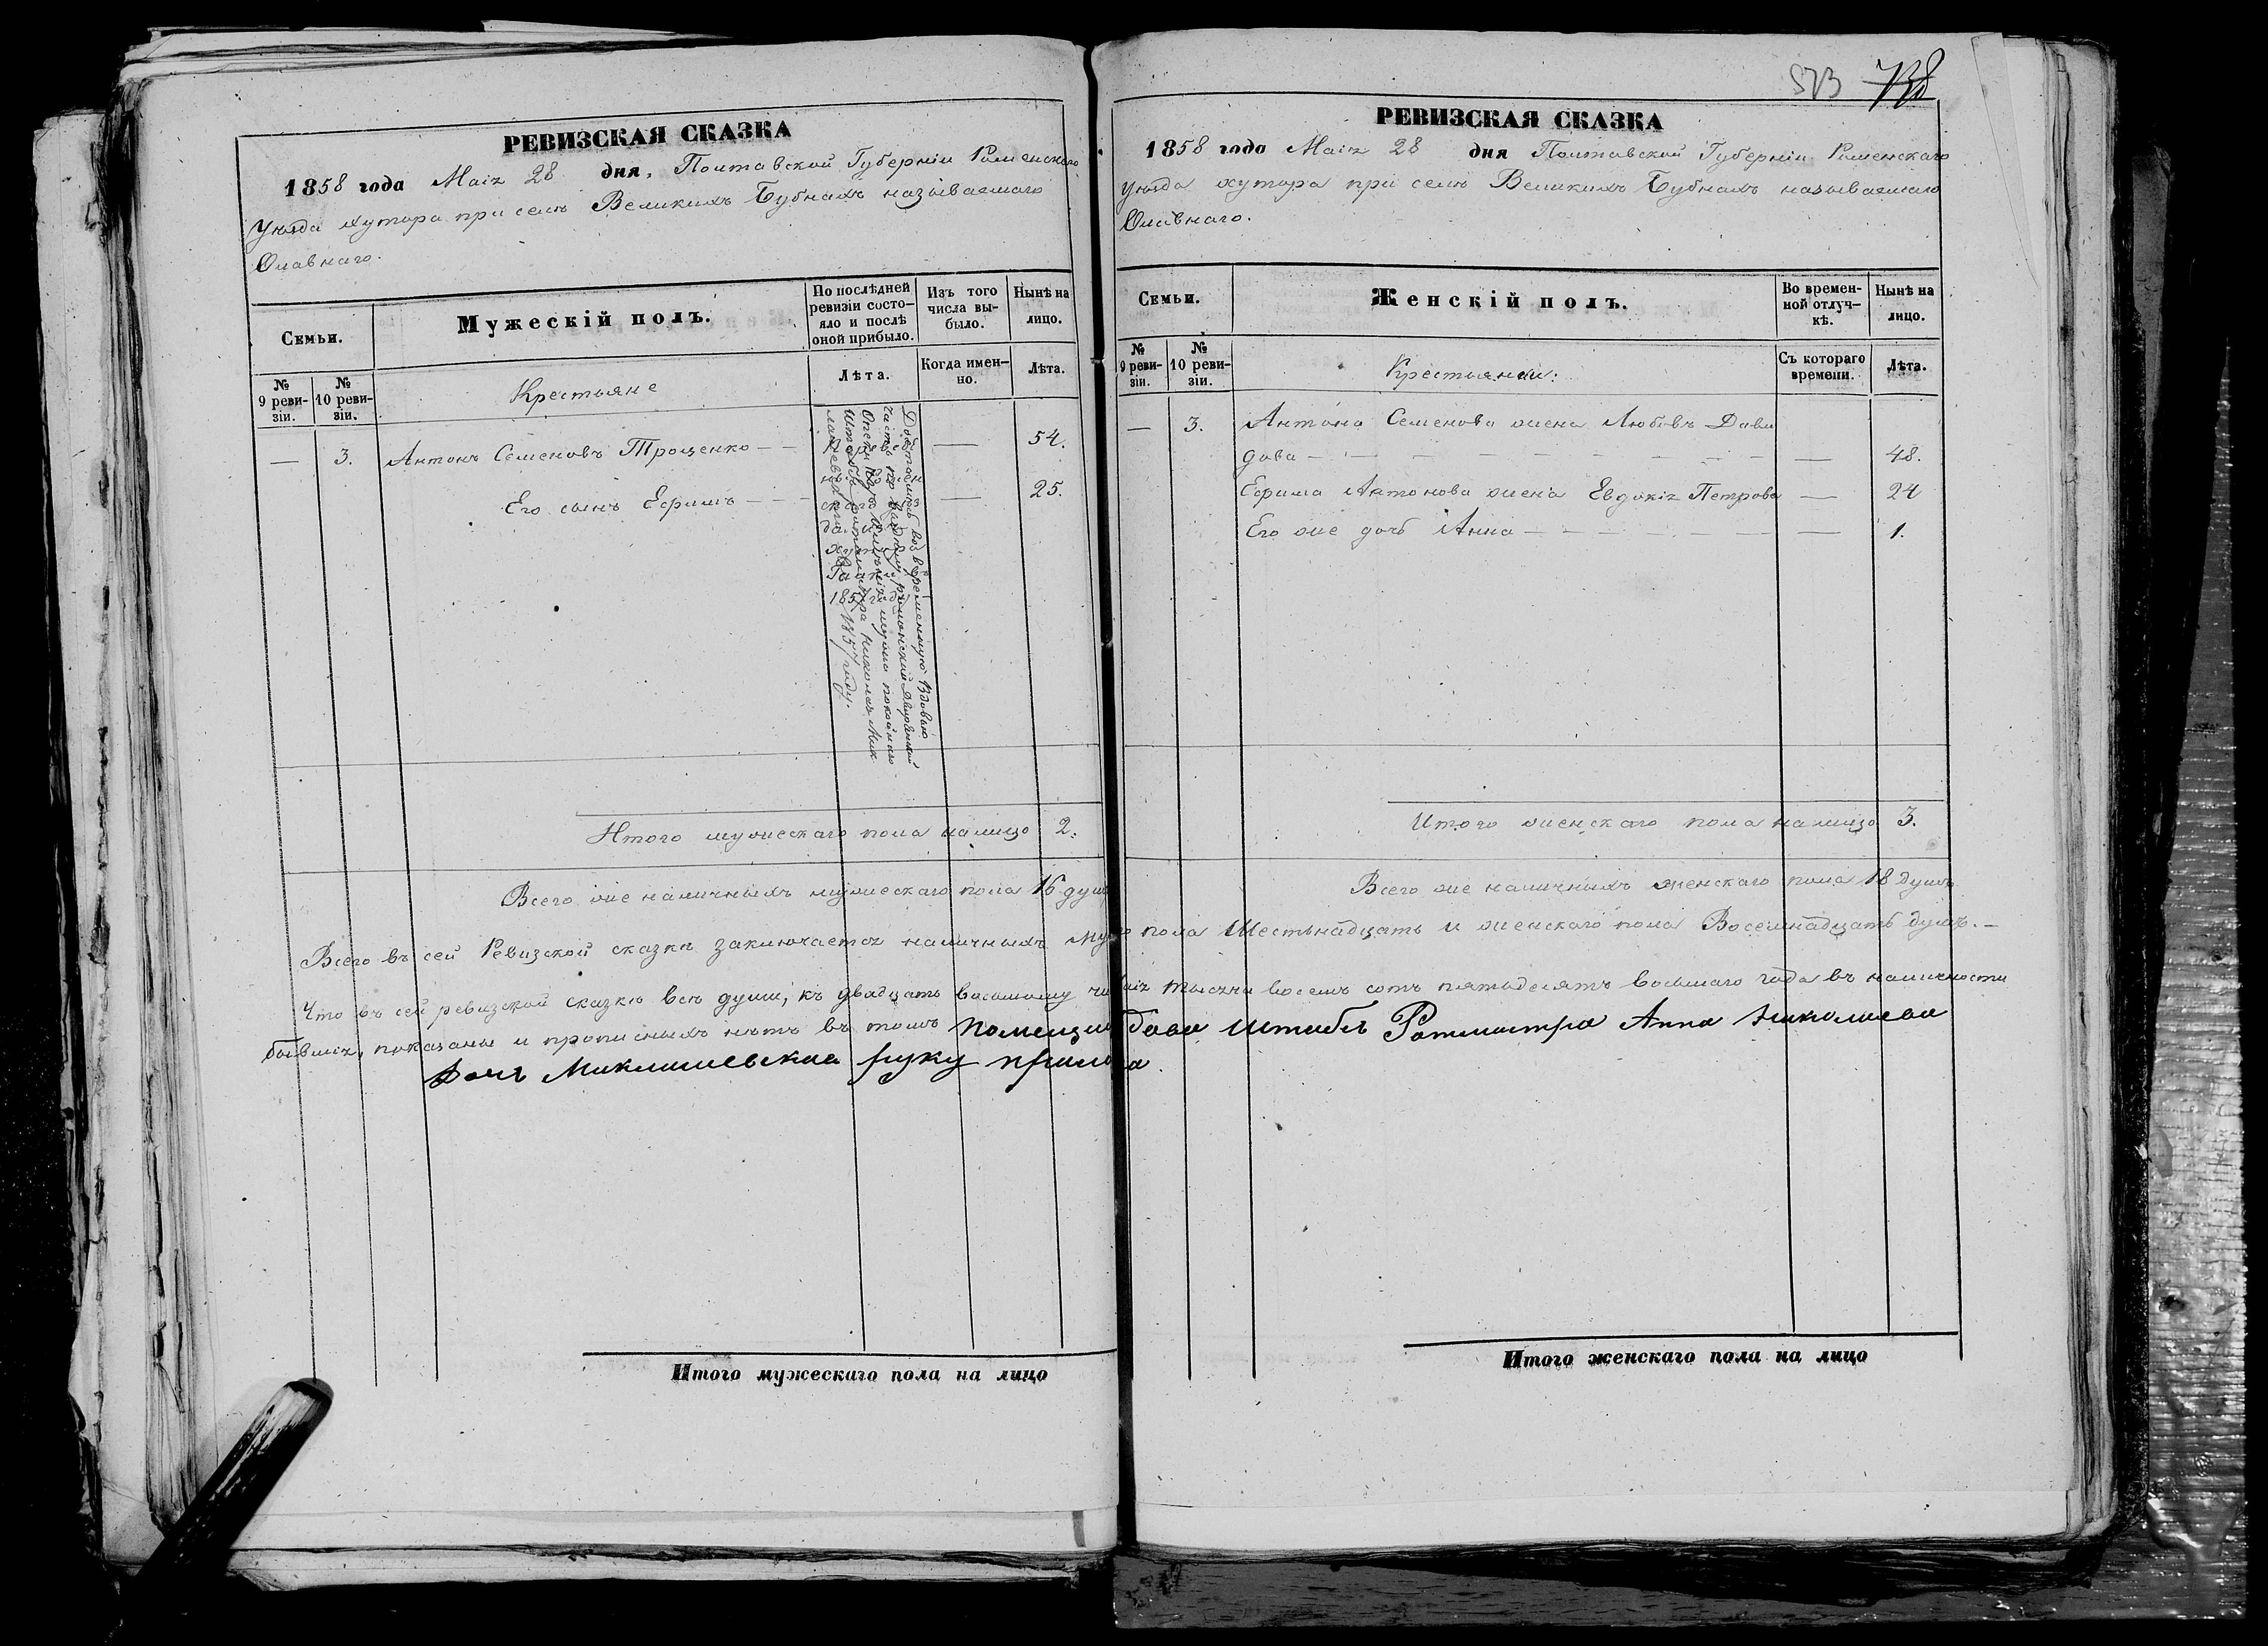 РЕВИЗСКАЯ СКАЗКА
1858 года Маія 28 дня, Полтавской Губерніи Роменскаго
уѣзда хутора при селѣ Великихъ Бубнахъ называемаго
Олавнаго.
Семьи.
Мужескій полъ.
По послѣдней
ревизіи состо-
яло и послѣ
оной прибыло.
Изъ того
числа вы-
было.
Нынѣ на
лицо.
№
9 реви-
зіи.
№
10 реви-
зіи.
Крестьяне
Лѣта.
Когда имен-
но.
Лѣта.
— 3. Антонъ Семеновъ Трощенко — — 54.
Его сынъ Ефимъ — — — 25.
1857
1857 году.
Итого мужескаго пола налицо 2.
Всего же наличныхъ мужескаго пола 16 душ
Итого мужескаго пола на лицо
573 738
РЕВИЗСКАЯ СКАЗКА
1858 года Маія 28 дня Полтавской Губерніи Роменскаго
уѣзда хутора при селѣ Великихъ Бубнахъ называемаго
Олавнаго.
Семьи.
Женскій полъ.
Во времен-
ной отлуч-
кѣ.
Нынѣ на
лицо.
№
9 реви-
зіи.
№
10 реви-
зіи.
Крестьянки:
Съ котораго
времени.
Лѣта.
— 3. Антона Семенова жена Любовь Дави
дова — — 48.
Ефима Антонова жена Евдокія Петрова — 24
Его же дочь Анна — — 1.
Итого женскаго пола налицо 3.
Всего же наличныхъ женскаго пола 18 душъ
Всего въ сей Ревизской сказкѣ заключается наличныхъ муж пола Шестьнадцать и женскаго пола Восемнадцать душъ. —
Что въ сей ревизской сказкѣ всѣ души, къ двадцать восьмому чи аія тысяча восемь сотъ пятьдесятъ восьмаго года въ наличности
бывшія, показаны и прописныхъ нѣтъ въ томъ помещи Штабъ Ротмистра Анна Николаева
Дочь Миклашевская руку прилож а.
Итого женскаго пола на лицо